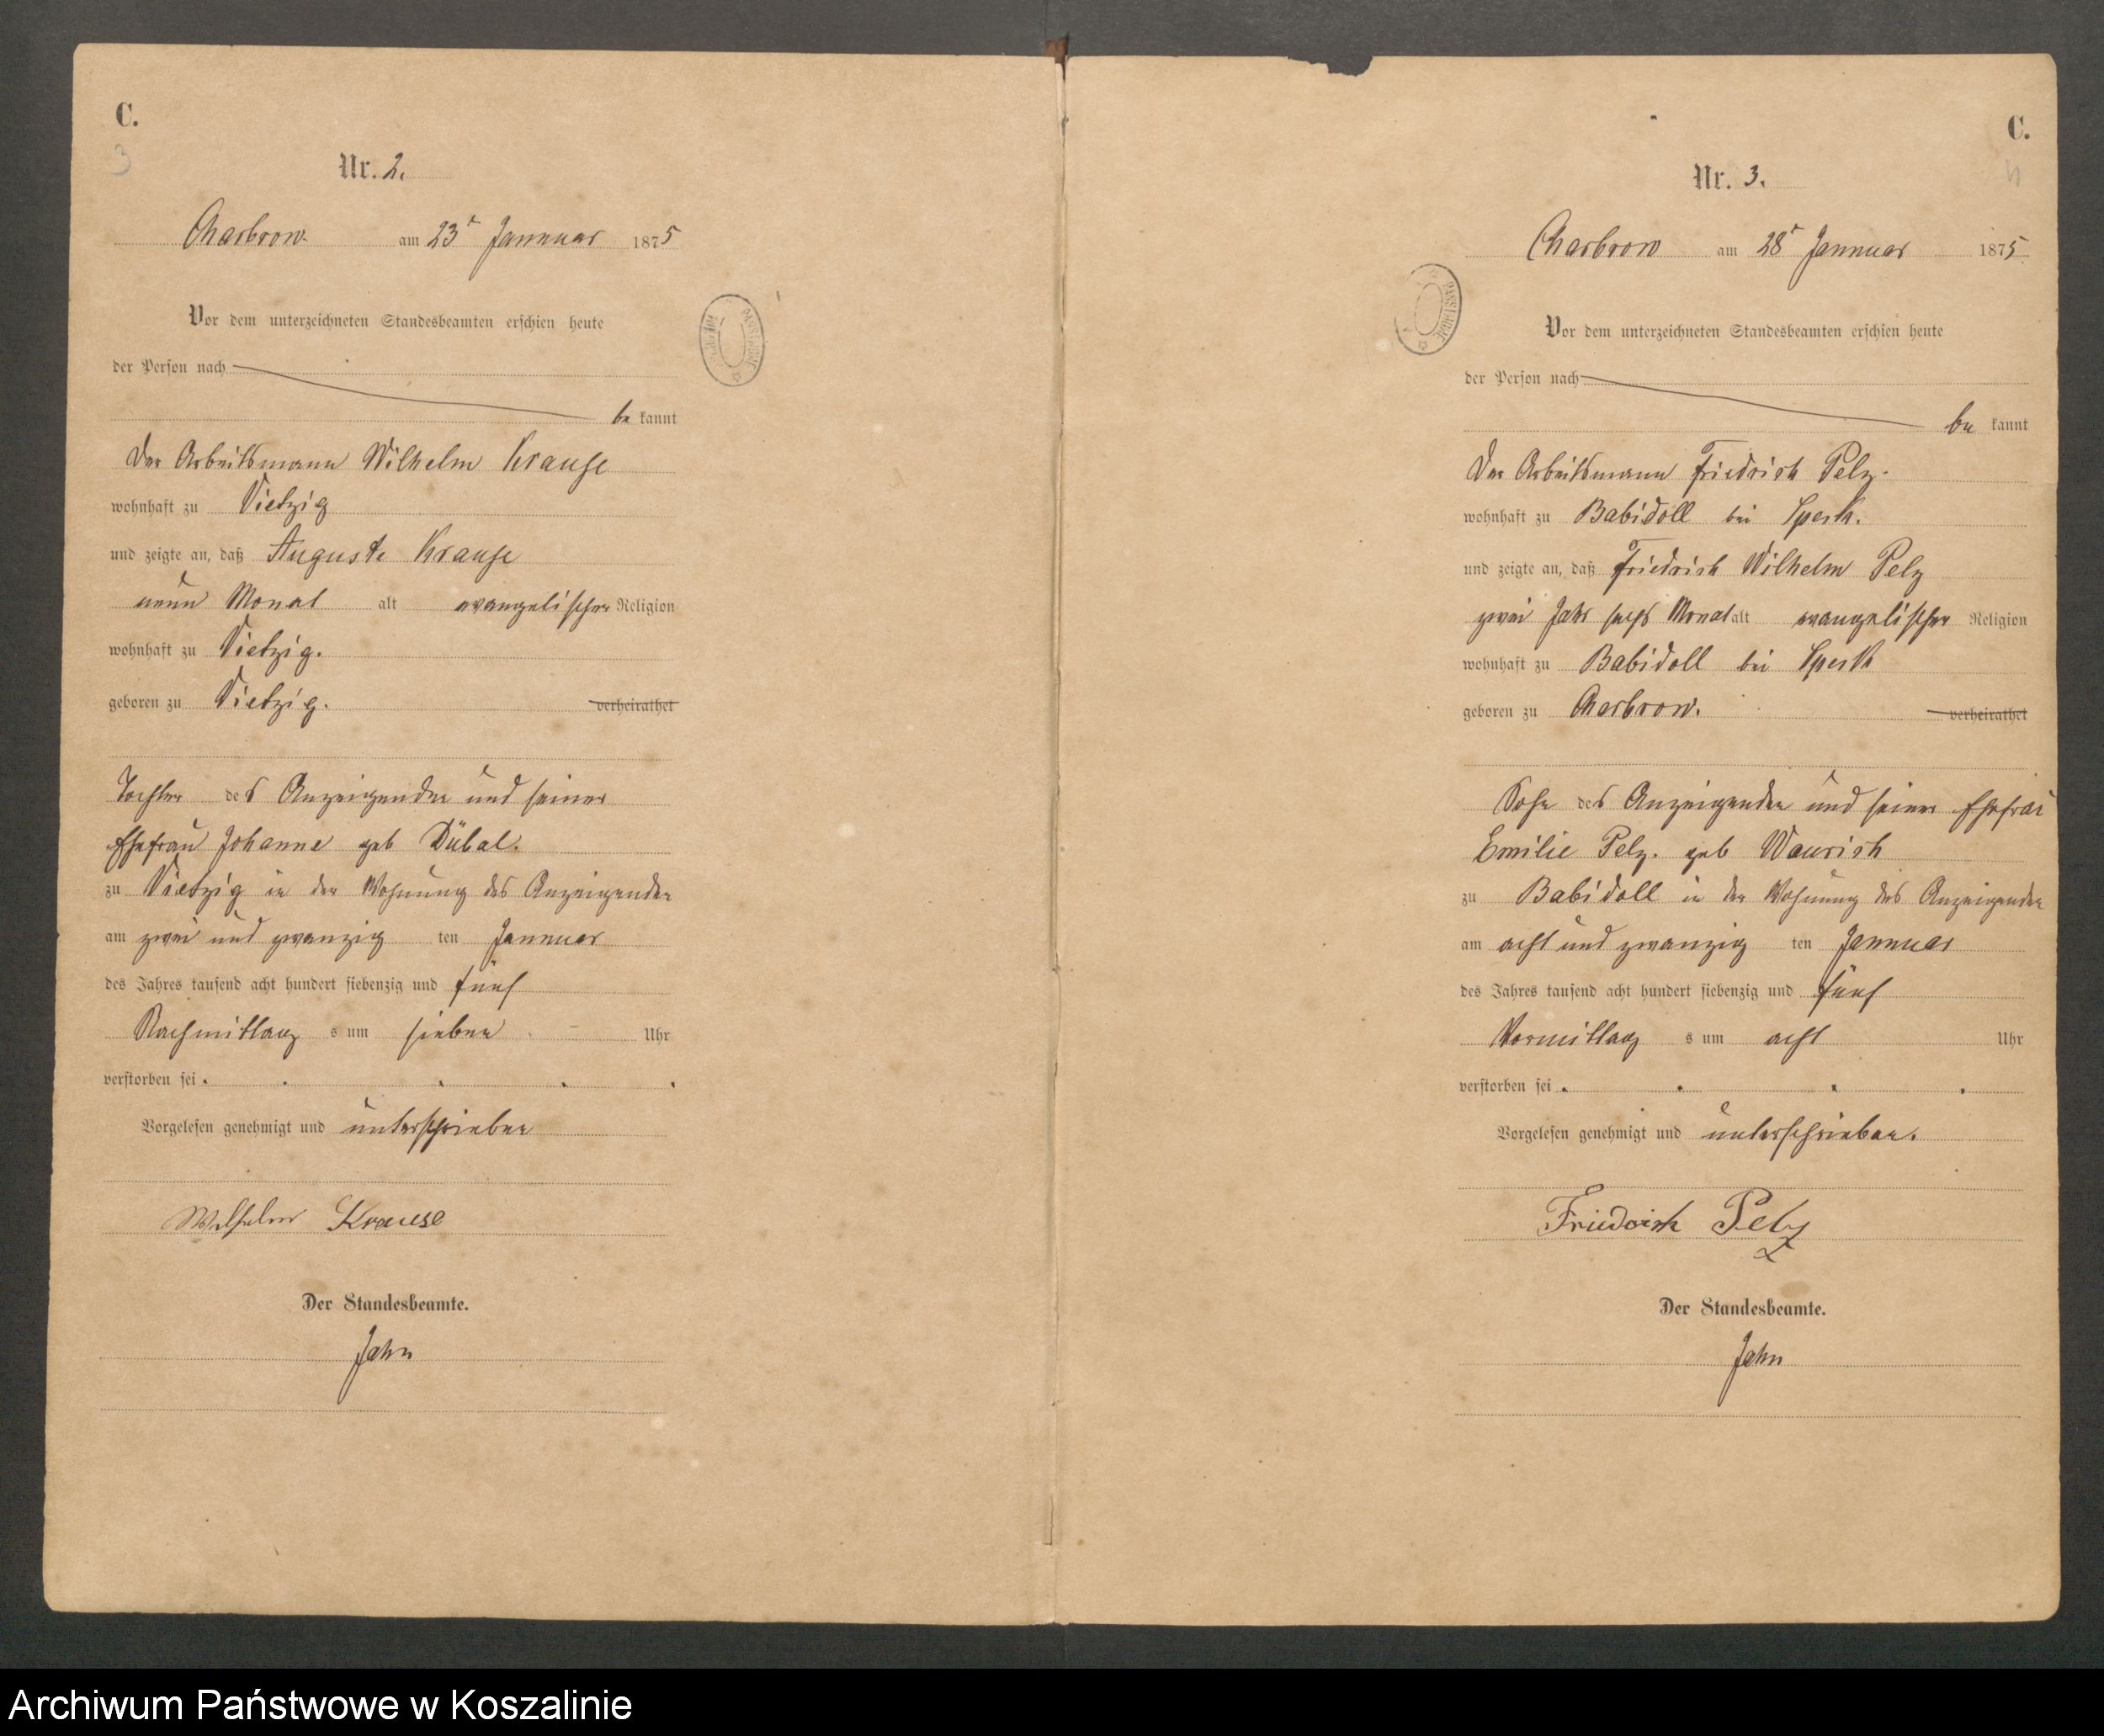 C.
3
Nr. 2.
Charbrow. am 23t Januar 1875
Vor dem unterzeichneten Standesbeamten erschien heute
der Person nach
be kannt
Der Arbeitsmann Wilhelm Krause
wohnhaft zu Vietzig
und zeigte an, daß Auguste Krause
neun Monat alt evangelischer Religion
wohnhaft zu Vietzig.
geboren zu Vietzig. verheirathet
Tochter des Anzeigenden und seiner
Ehefrau Johanne geb Dübal.
zu Vietzig in der Wohnung des Anzeigenden
am zwei und zwanzig ten Januar
des Jahres tausend acht hundert siebenzig und fünf
Nachmittag s um sieben Uhr
verstorben sei.
Vorgelesen genehmigt und unterschrieben
Wilhelm Krause
Der Standesbeamte.
Jahn
C.
4
Nr. 3.
Charbrow am 28t Januar 1875
Vor dem unterzeichneten Standesbeamten erschien heute
der Person nach
be kannt
Der Arbeitsmann Friedrich Pelz.
wohnhaft zu Babidoll bei Speck.
und zeigte an, daß Friedrich Wilhelm Pelz
zwei Jahr sechs Monat alt evangelischer Religion
wohnhaft zu Babidoll bei Speck
geboren zu Charbrow. verheirathet
Sohn des Anzeigenden und seiner Ehefrau
Emilie Pelz. geb Waurich
zu Babidoll in der Wohnung des Anzeigenden
am acht und zwanzig ten Januar
des Jahres tausend acht hundert siebenzig und fünf
Vormittag s um acht Uhr
verstorben sei.
Vorgelesen genehmigt und unterschrieben.
Friedrich Pelz
Der Standesbeamte.
Jahn
Archiwum Państwowe w Koszalinie